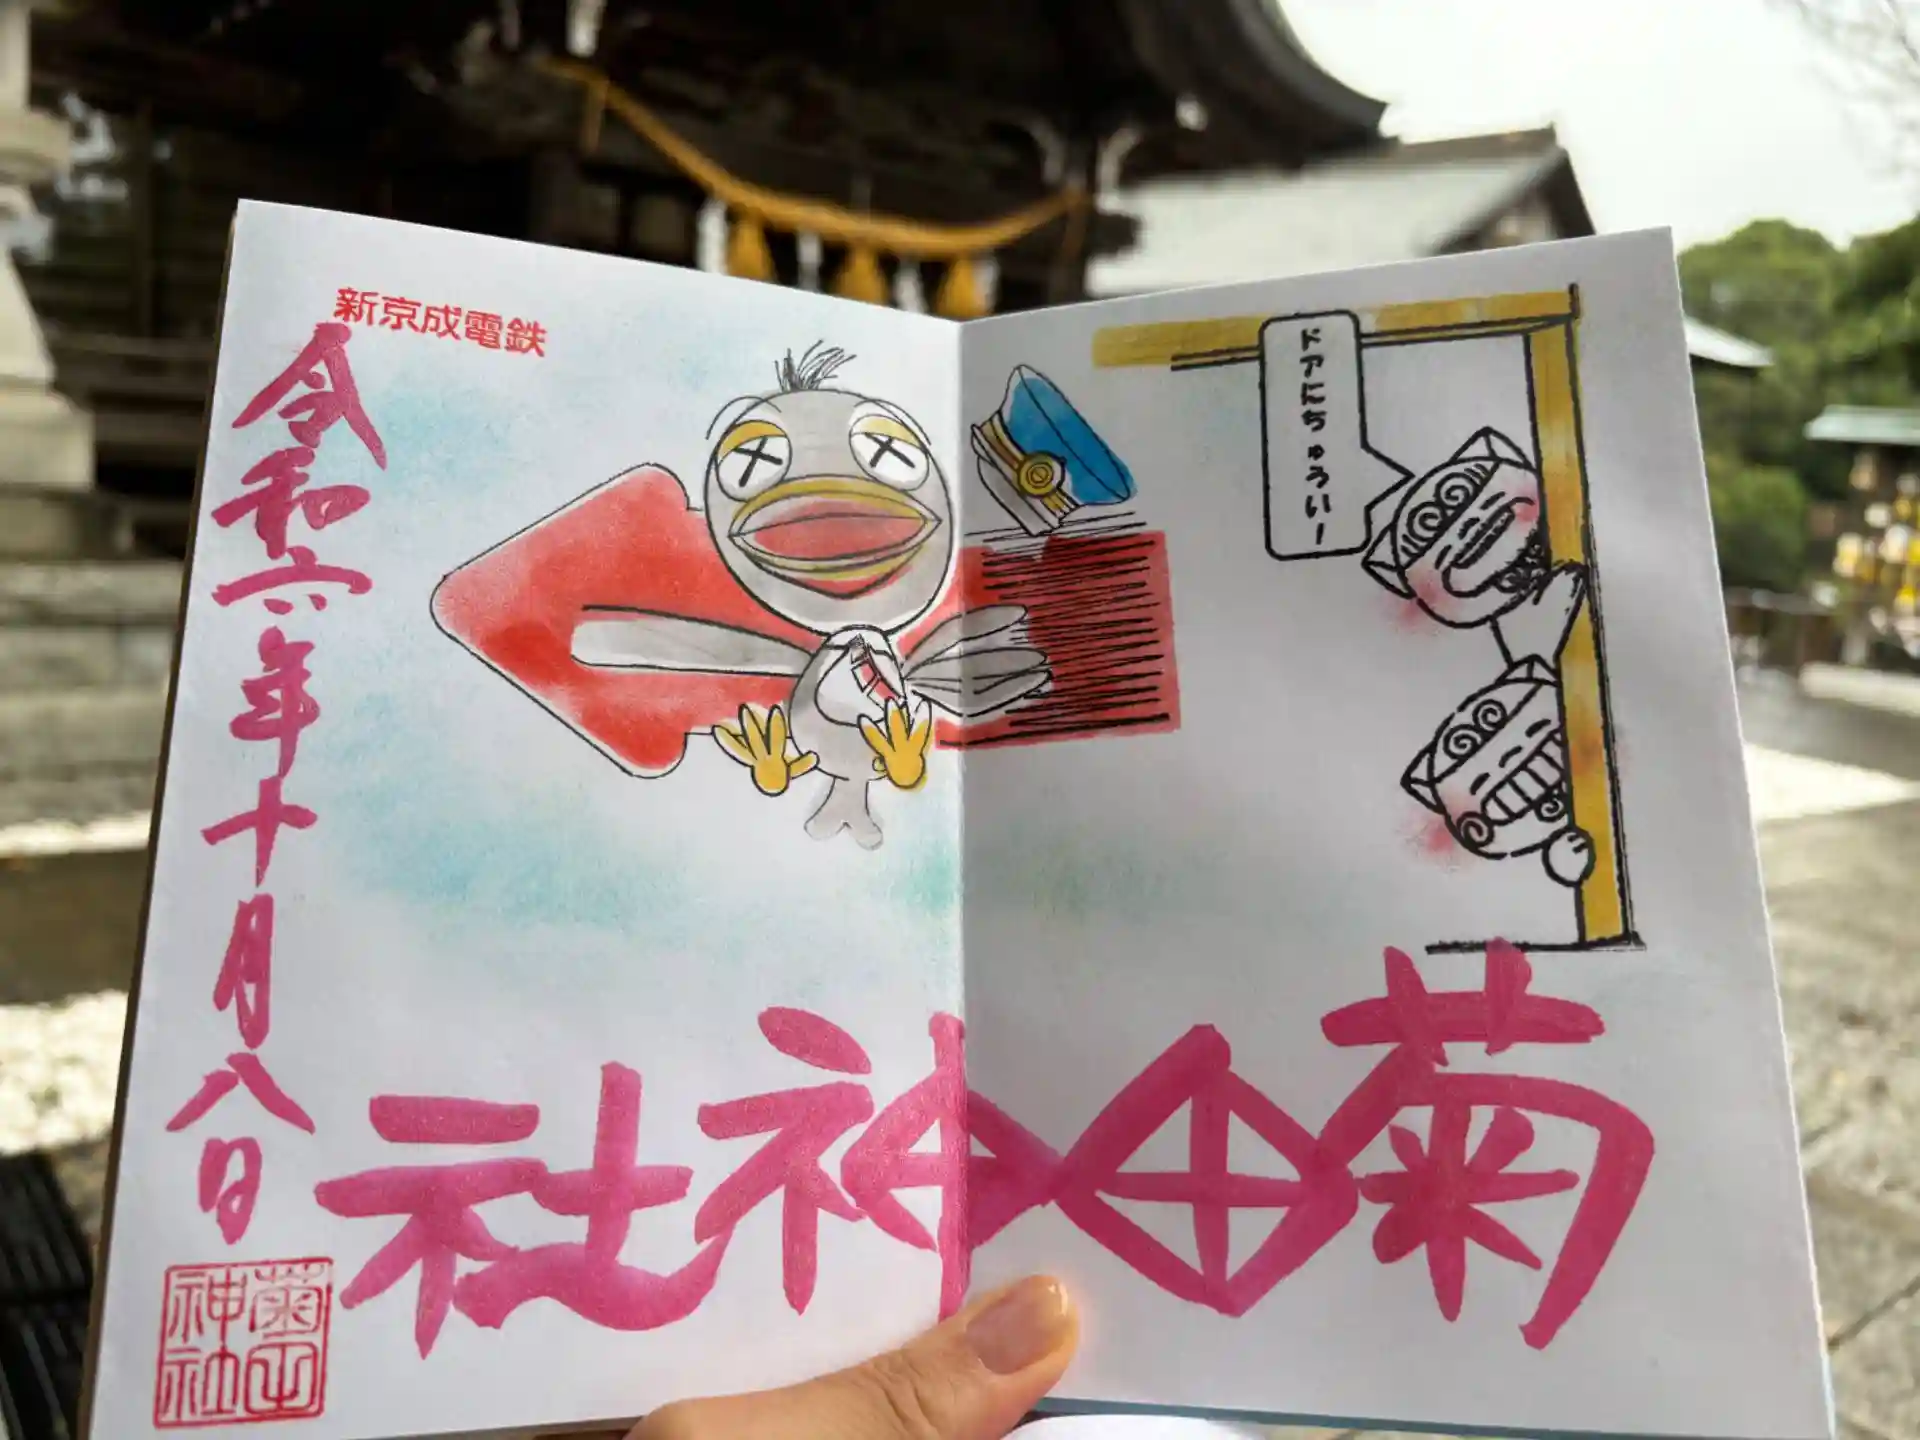 新京成電鉄
令和六年十月八日
ドアにちゅういー
菊田神社
菊田神社